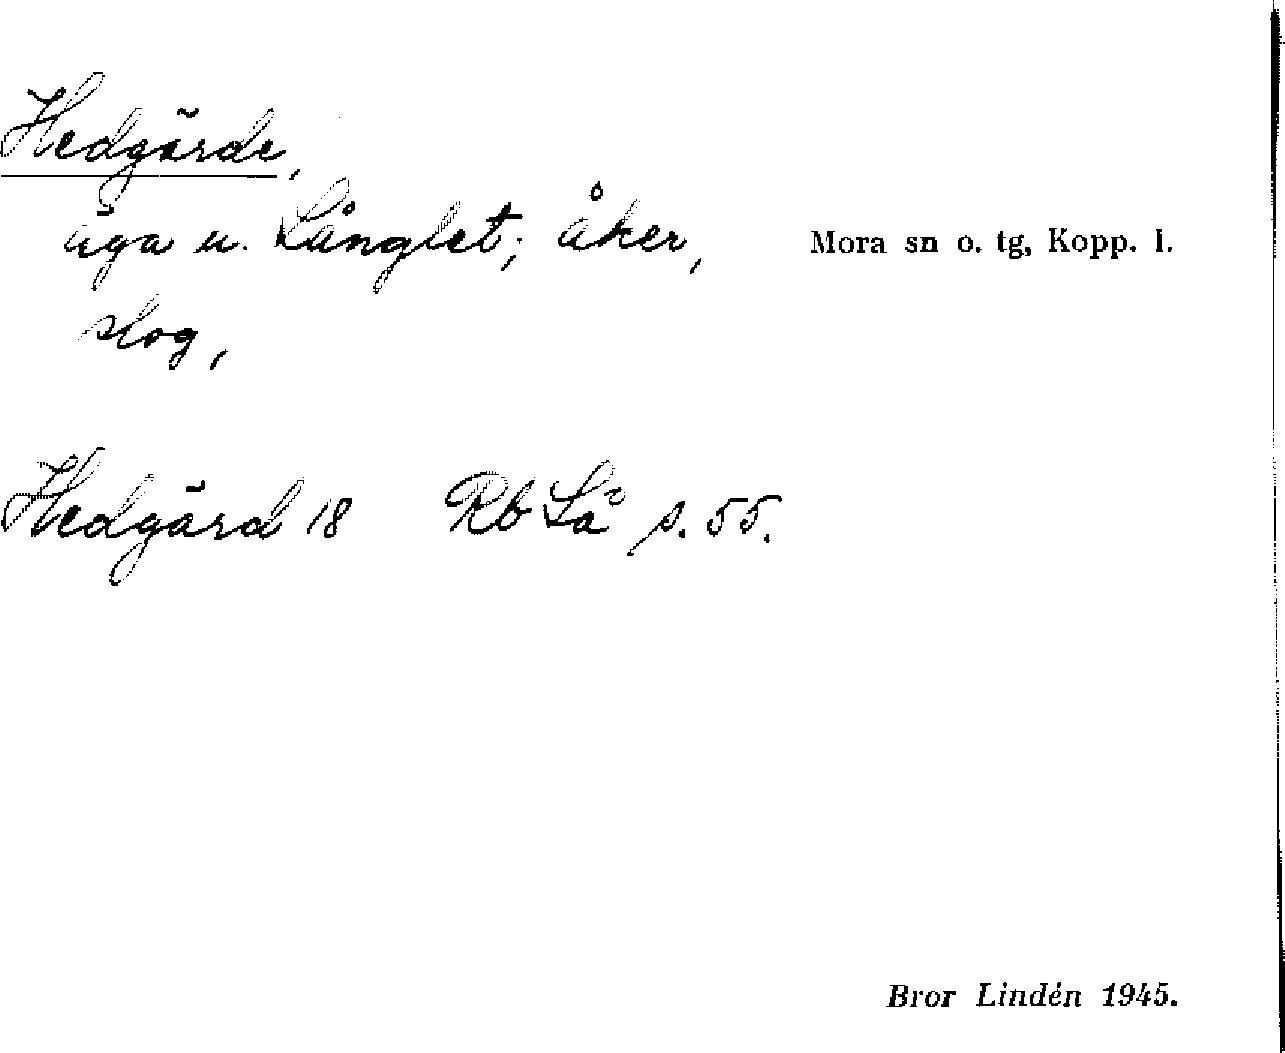 Hedgärde,
äga u. Långlet; åker,
Mora sn o. tg, Kopp. l.
slog,
Hedgärd 18 Rb Lå² s. 55.
Bror Lindén 1945.